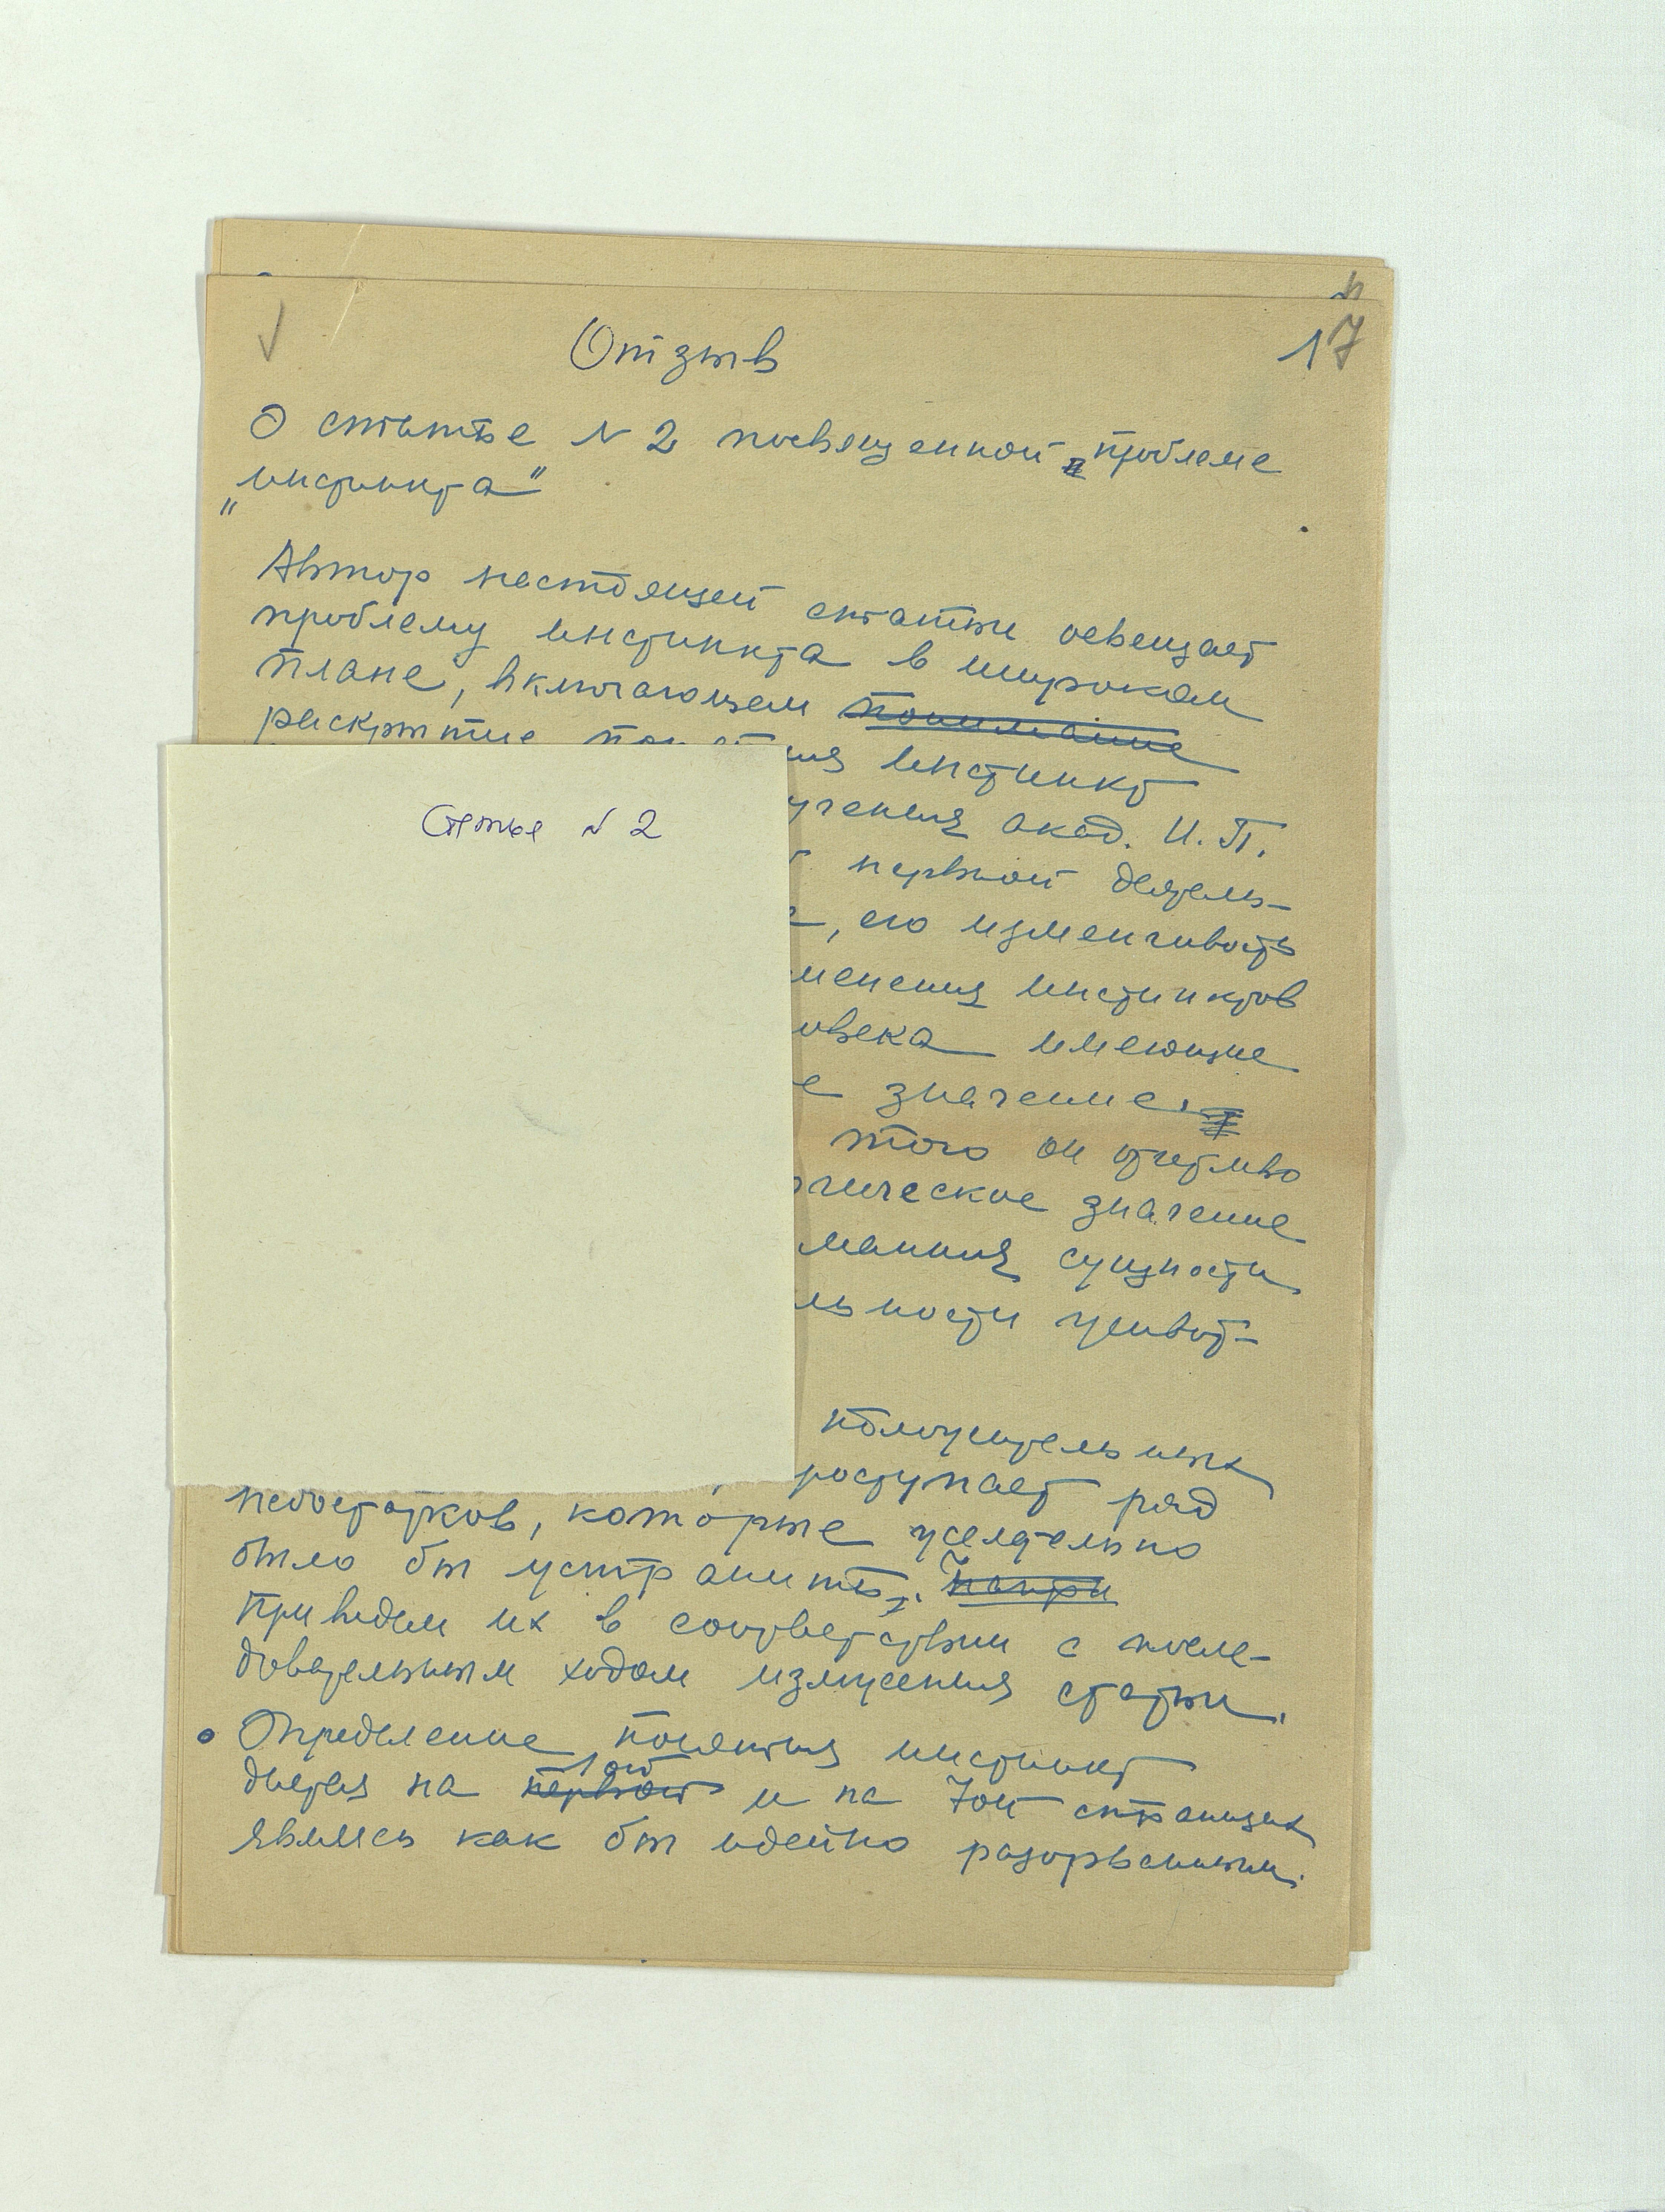 17
Отзыв
О статье N 2 посвященной проблеме
„инстинкта"
Автор настоящей статьи освещает
проблему инстинкта в широком
плане, включающем понимание
раскрытие по ия инстинкт
учения акад. И. П.
нервной деятель-
, его изменчивость
менения инстинктов
овека имеющие
е значение.
того он отчетливо
гическое значение
мания сущности
льности живот-
положительных
роступает ряд
недостатков, которые желательно
было бы устранить. Напри
Приведем их в соответствии с после-
довательным ходом изложения статьи.
Определение понятия инстинкт
1ой
дается на первой и на 7ой страницах
являясь как бы идейно разорванным.
Статья N 2